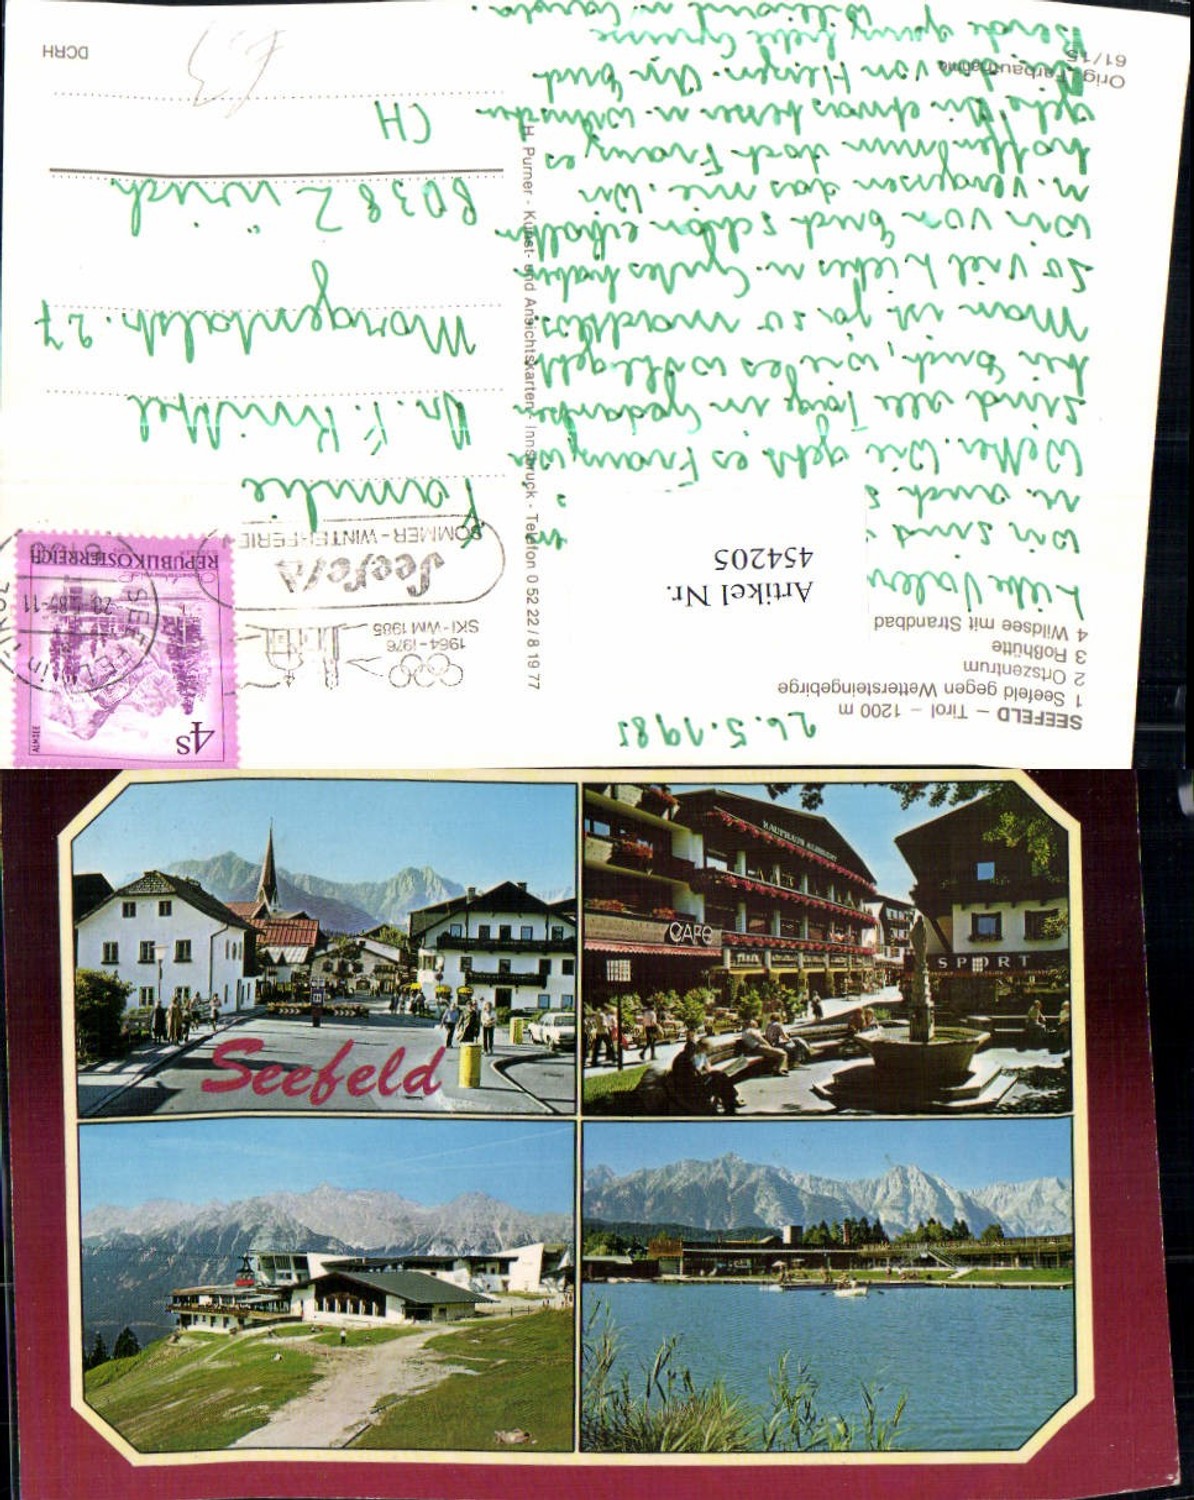 SEEFELD – Tirol – 1200 m
1 Seefeld gegen Wettersteingebirge
2 Ortszentrum
3 Roßhütte
4 Wildsee mit Strandbad
26.5.1985
Artikel Nr.
454205
Liebe
wir sind
u. auch
Wetter. Wie geht es Franz, wir
sind alle Tage in Gedanken
bei Euch, wie es wohl geht.
Man ist ja so machtlos.
So viel Liebes u. Gutes haben
wir von Euch schon erhalten
u. vergessen das nie. Wir
hoffen nun doch Franz es
gehe Dir etwas besser u. wünschen
von Herzen. An Euch
Beide ganz liebe Grüsse
Orig. Farbaufnahme
61/15
H. Purner - Kunst- und Ansichtskarten - Innsbruck - Telefon 0 52 22 / 8 19 77
1964-1976
SKI-WM 1985
Seefeld
SOMMER-WINTER-FERIE
SEEFELD IN TIROL
-11
4S
ALMSEE
REPUBLIK ÖSTERREICH
Familie
Dr. F. Knüttel
Morgentalstr. 27
8038 Zürich
CH
DCRH
Seefeld
KAUFHAUS ALBRECHT
CAFE
SPORT